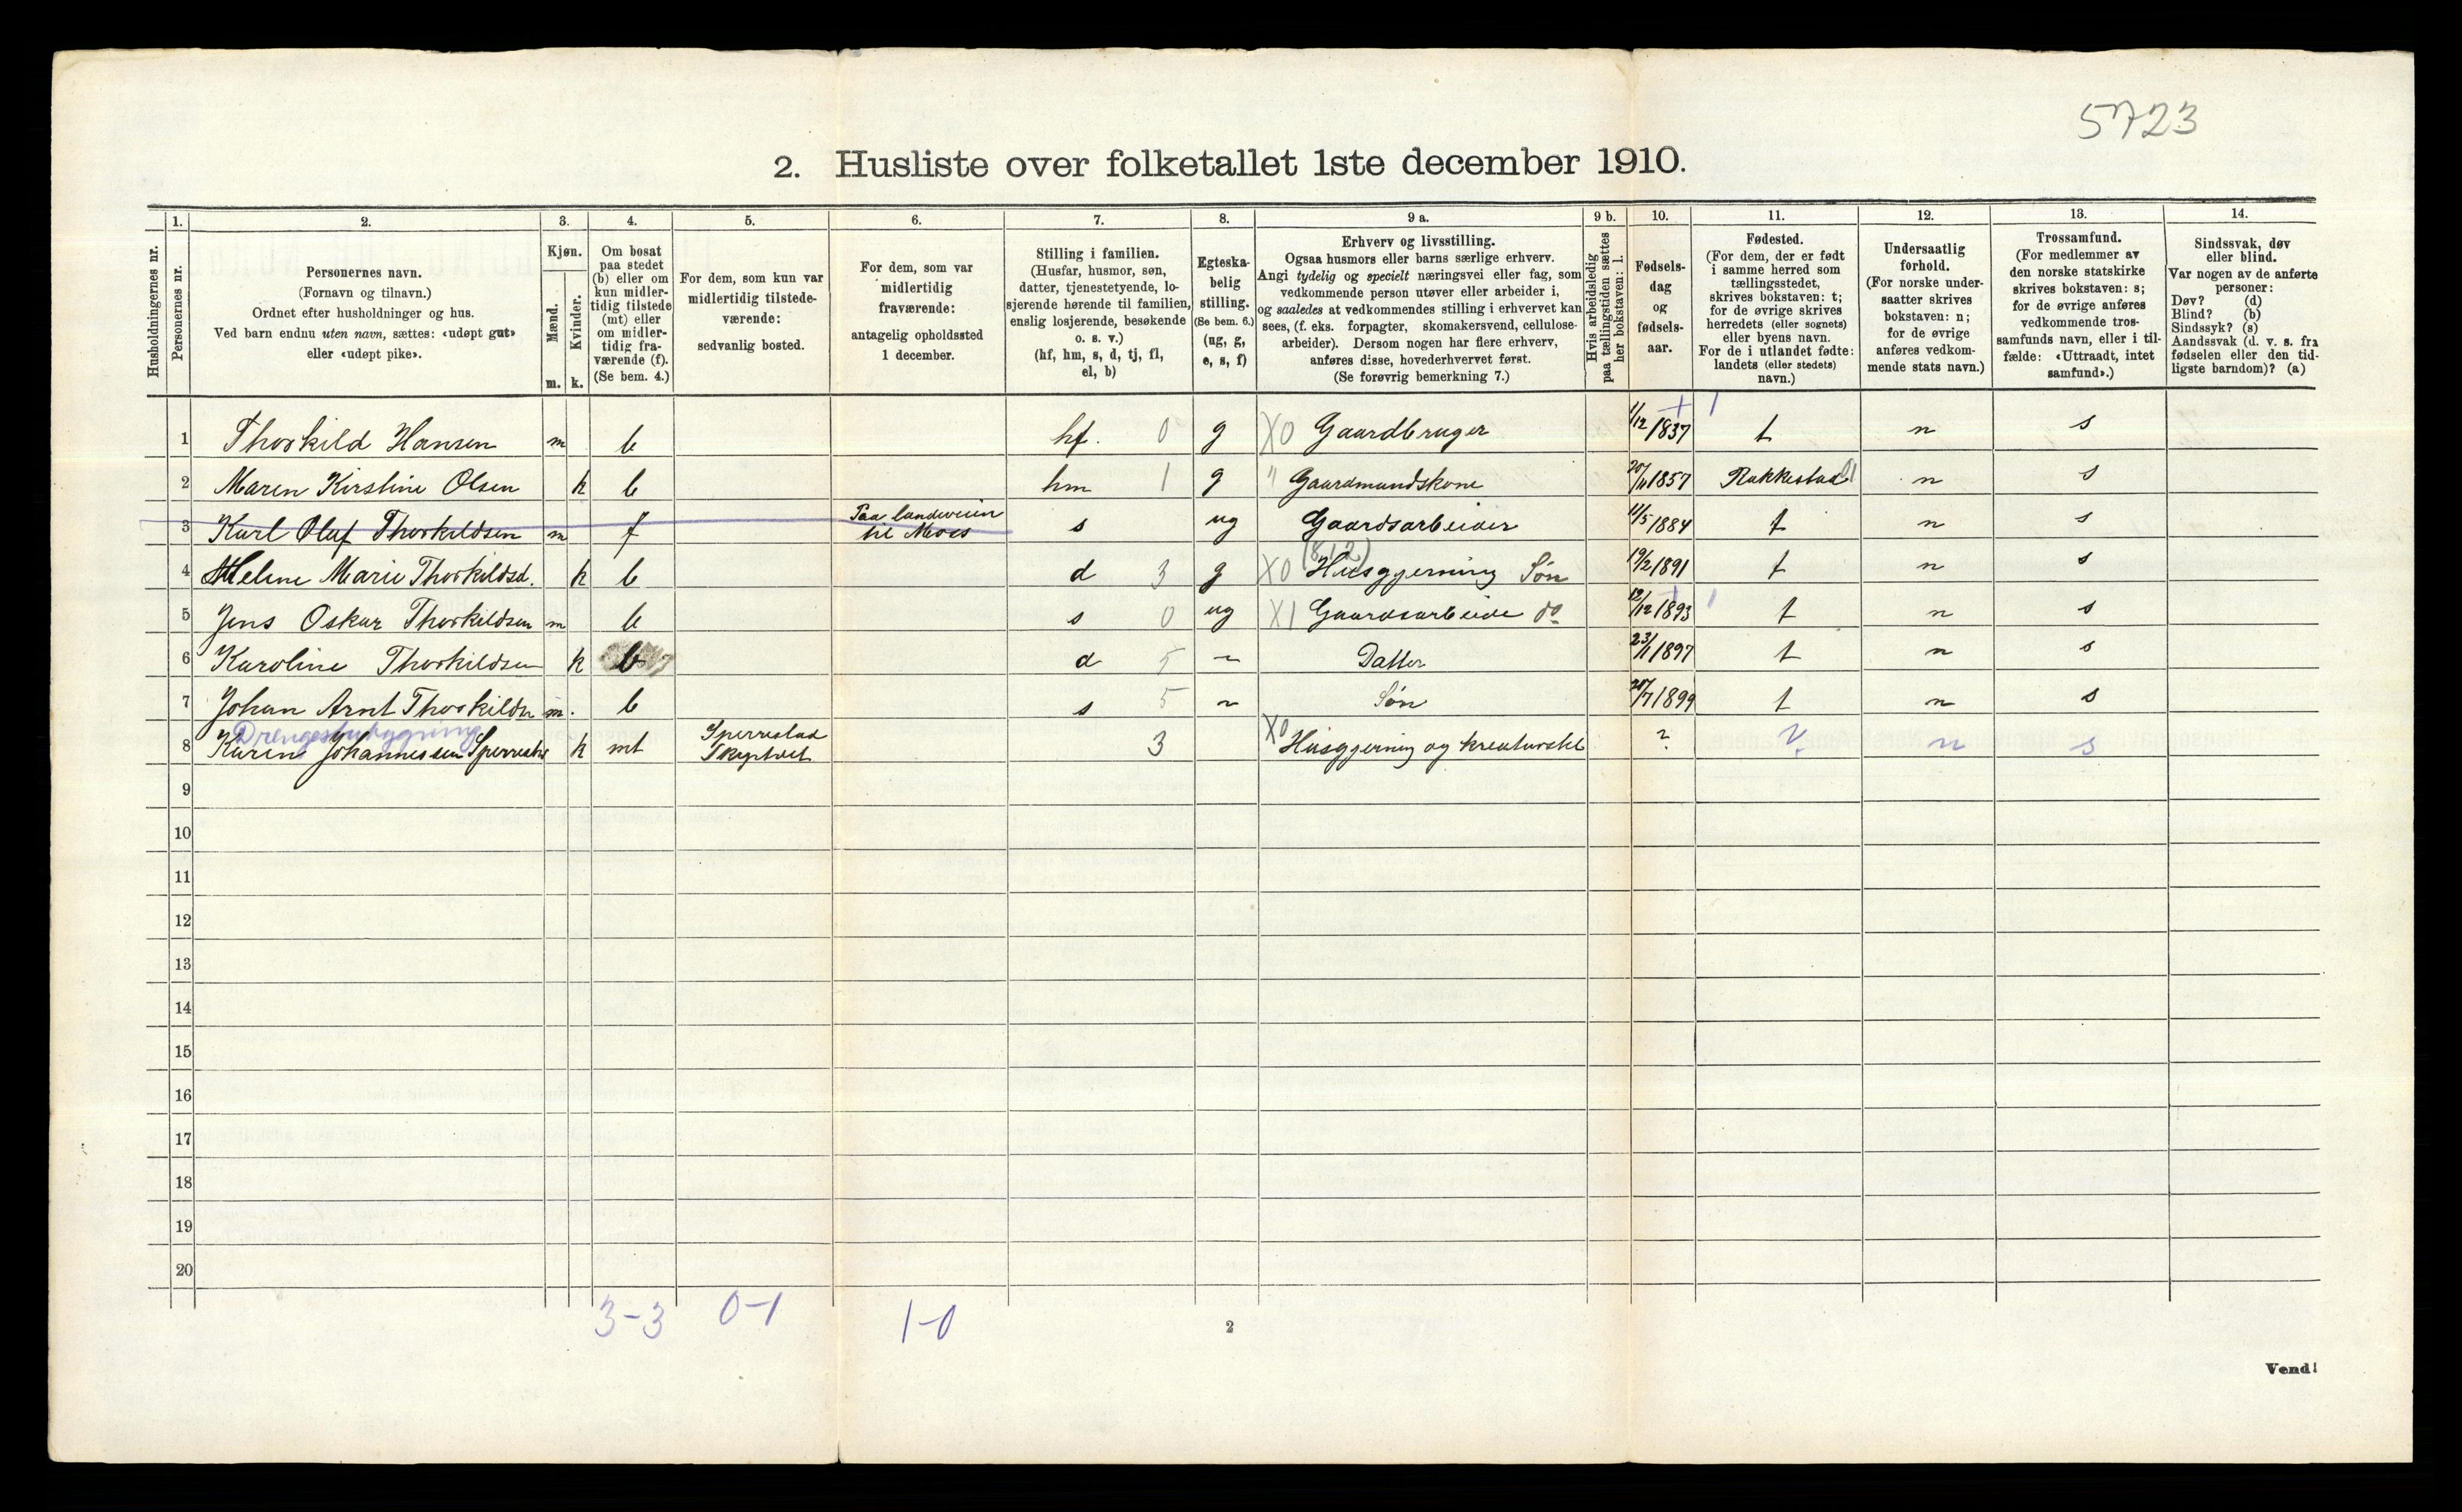 5723
2. Husliste over folketallet 1ste december 1910.
Husholdningernes nr.
1.
Personernes nr.
2.
Personernes navn.
(Fornavn og tilnavn.)
Ordnet efter husholdninger og hus.
Ved barn endnu uten navn, sættes: «udøpt gut»
eller «udøpt pike».
3.
Kjøn.
Mænd.
Kvinder.
m. k.
4.
Om bosat
paa stedet
(b) eller om
kun midler-
tidig tilstede
(mt) eller
om midler-
tidig fra-
værende (f).
(Se bem. 4.)
5.
For dem, som kun var
midlertidig tilstede-
værende:
sedvanlig bosted.
6.
For dem, som var
midlertidig
fraværende:
antagelig opholdssted
1 december.
7.
Stilling i familien.
(Husfar, husmor, søn,
datter, tjenestetyende, lo-
sjerende hørende til familien,
enslig losjerende, besøkende
o. s. v.)
(hf, hm, s, d, tj, fl,
el, b)
8.
Egteska-
belig
stilling.
(Se bem. 6.)
(ug, g,
e, s, f)
9 a.
Erhverv og livsstilling.
Ogsaa husmors eller barns særlige erhverv.
Angi tydelig og specielt næringsvei eller fag, som
vedkommende person utøver eller arbeider i,
og saaledes at vedkommendes stilling i erhvervet kan
sees, (f. eks. forpagter, skomakersvend, cellulose-
arbeider). Dersom nogen har flere erhverv,
anføres disse, hovederhvervet først.
(Se forøvrig bemerkning 7.)
9 b.
Hvis arbeidsledig
paa tællingstiden sættes
her bokstaven: l.
10.
Fødsels-
dag
og
fødsels-
aar.
11.
Fødested.
(For dem, der er født
i samme herred som
tællingsstedet,
skrives bokstaven: t;
for de øvrige skrives
herredets (eller sognets)
eller byens navn.
For de i utlandet fødte:
landets (eller stedets)
navn.)
12.
Undersaatlig
forhold.
(For norske under-
saatter skrives
bokstaven: n;
for de øvrige
anføres vedkom-
mende stats navn.)
13.
Trossamfund.
(For medlemmer av
den norske statskirke
skrives bokstaven: s;
for de øvrige anføres
vedkommende tros-
samfunds navn, eller i til-
fælde: «Uttraadt, intet
samfund».)
14.
Sindssvak, døv
eller blind.
Var nogen av de anførte
personer:
Døv? (d)
Blind? (b)
Sindssyk? (s)
Aandssvak (d. v. s. fra
fødselen eller den tid-
ligste barndom)? (a)
1 Thorkild Hansen m b hf. 0 g X0 Gaardbruger 1/12 1837 t n s
2 Maren Kirstine Olsen k b hm 1 g " Gaardmandskone 20/11 1857 Rakkestad n s
3 Karl Olaf Thorkildsen m f Paa landeveien til Moss s ug Gaardsarbeider 11/5 1884 t n s
4 Helene Marie Thorkildsd. k b d 3 g X0 Husgjerning Søn 19/2 1891 t n s
5 Jens Oskar Thorkildsen m b s 0 ug X1 Gaardsarbeide do 12/12 1893 t n s
6 Karoline Thorkildsen k b d 5 ~ Datter 23/1 1897 t n s
7 Johan Arnt Thorkildn m. b s 5 ~ Søn 20/7 1899 t n s
8 Karen Johannessen k mt Sperrestad Skyptvet 3 X0 Husgjerning og kreaturstel ? ? n s
9
10
11
12
13
14
15
16
17
18
19
20
3-3 0-1 1-0
2
Vend!